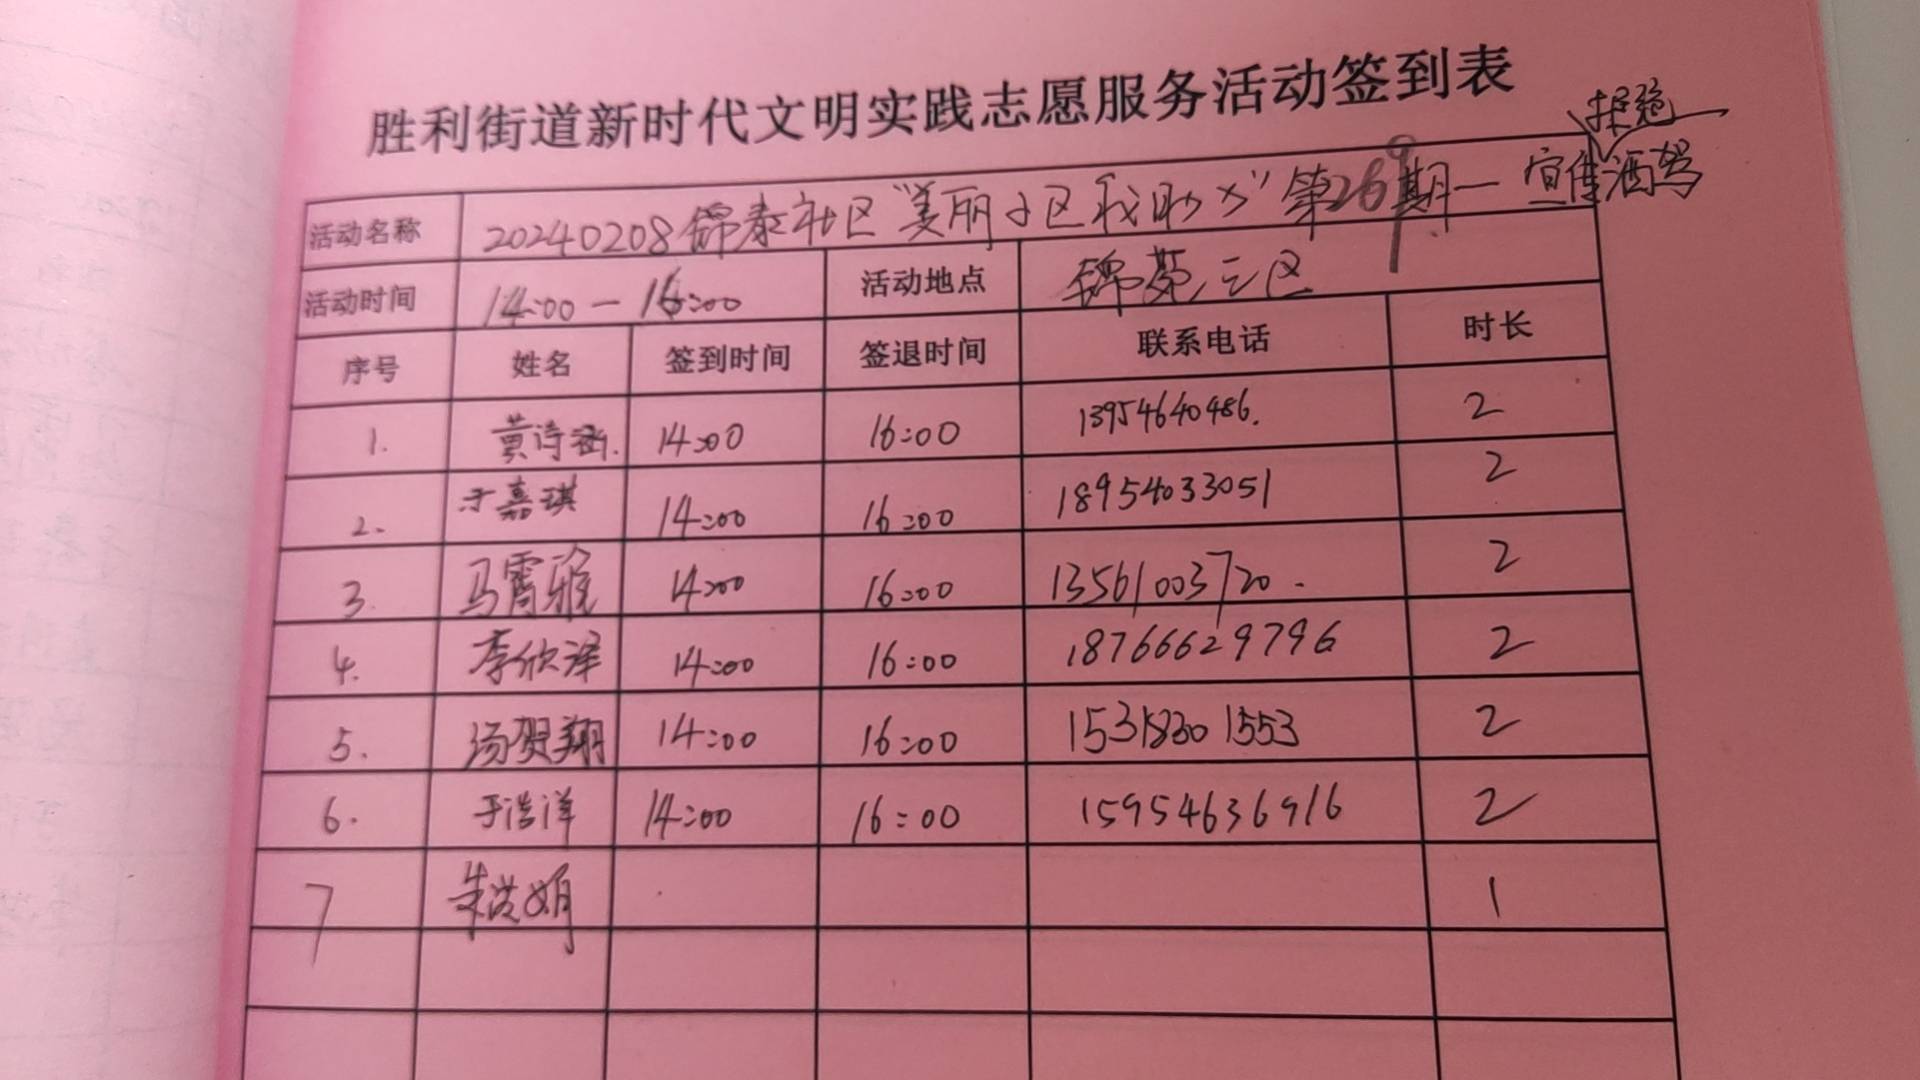 胜利街道新时代文明实践志愿服务活动签到表
拒绝
活动名称 20240208锦泰社区"美丽小区我助力"第269期一宣传酒驾
活动时间 14:00－16:00 活动地点 锦苑三区
序号 姓名 签到时间 签退时间 联系电话 时长
1. 黄诗涵. 14:00 16:00 13954640486. 2
2. 于嘉琪 14:00 16:00 18954033051 2
3. 马霄雅 14:00 16:00 13561003720. 2
4. 李欣泽 14:00 16:00 18766629796 2
5. 汤贺翔 14:00 16:00 15318301553 2
6. 于浩洋 14:00 16:00 15954636916 2
7 朱洪娟 1